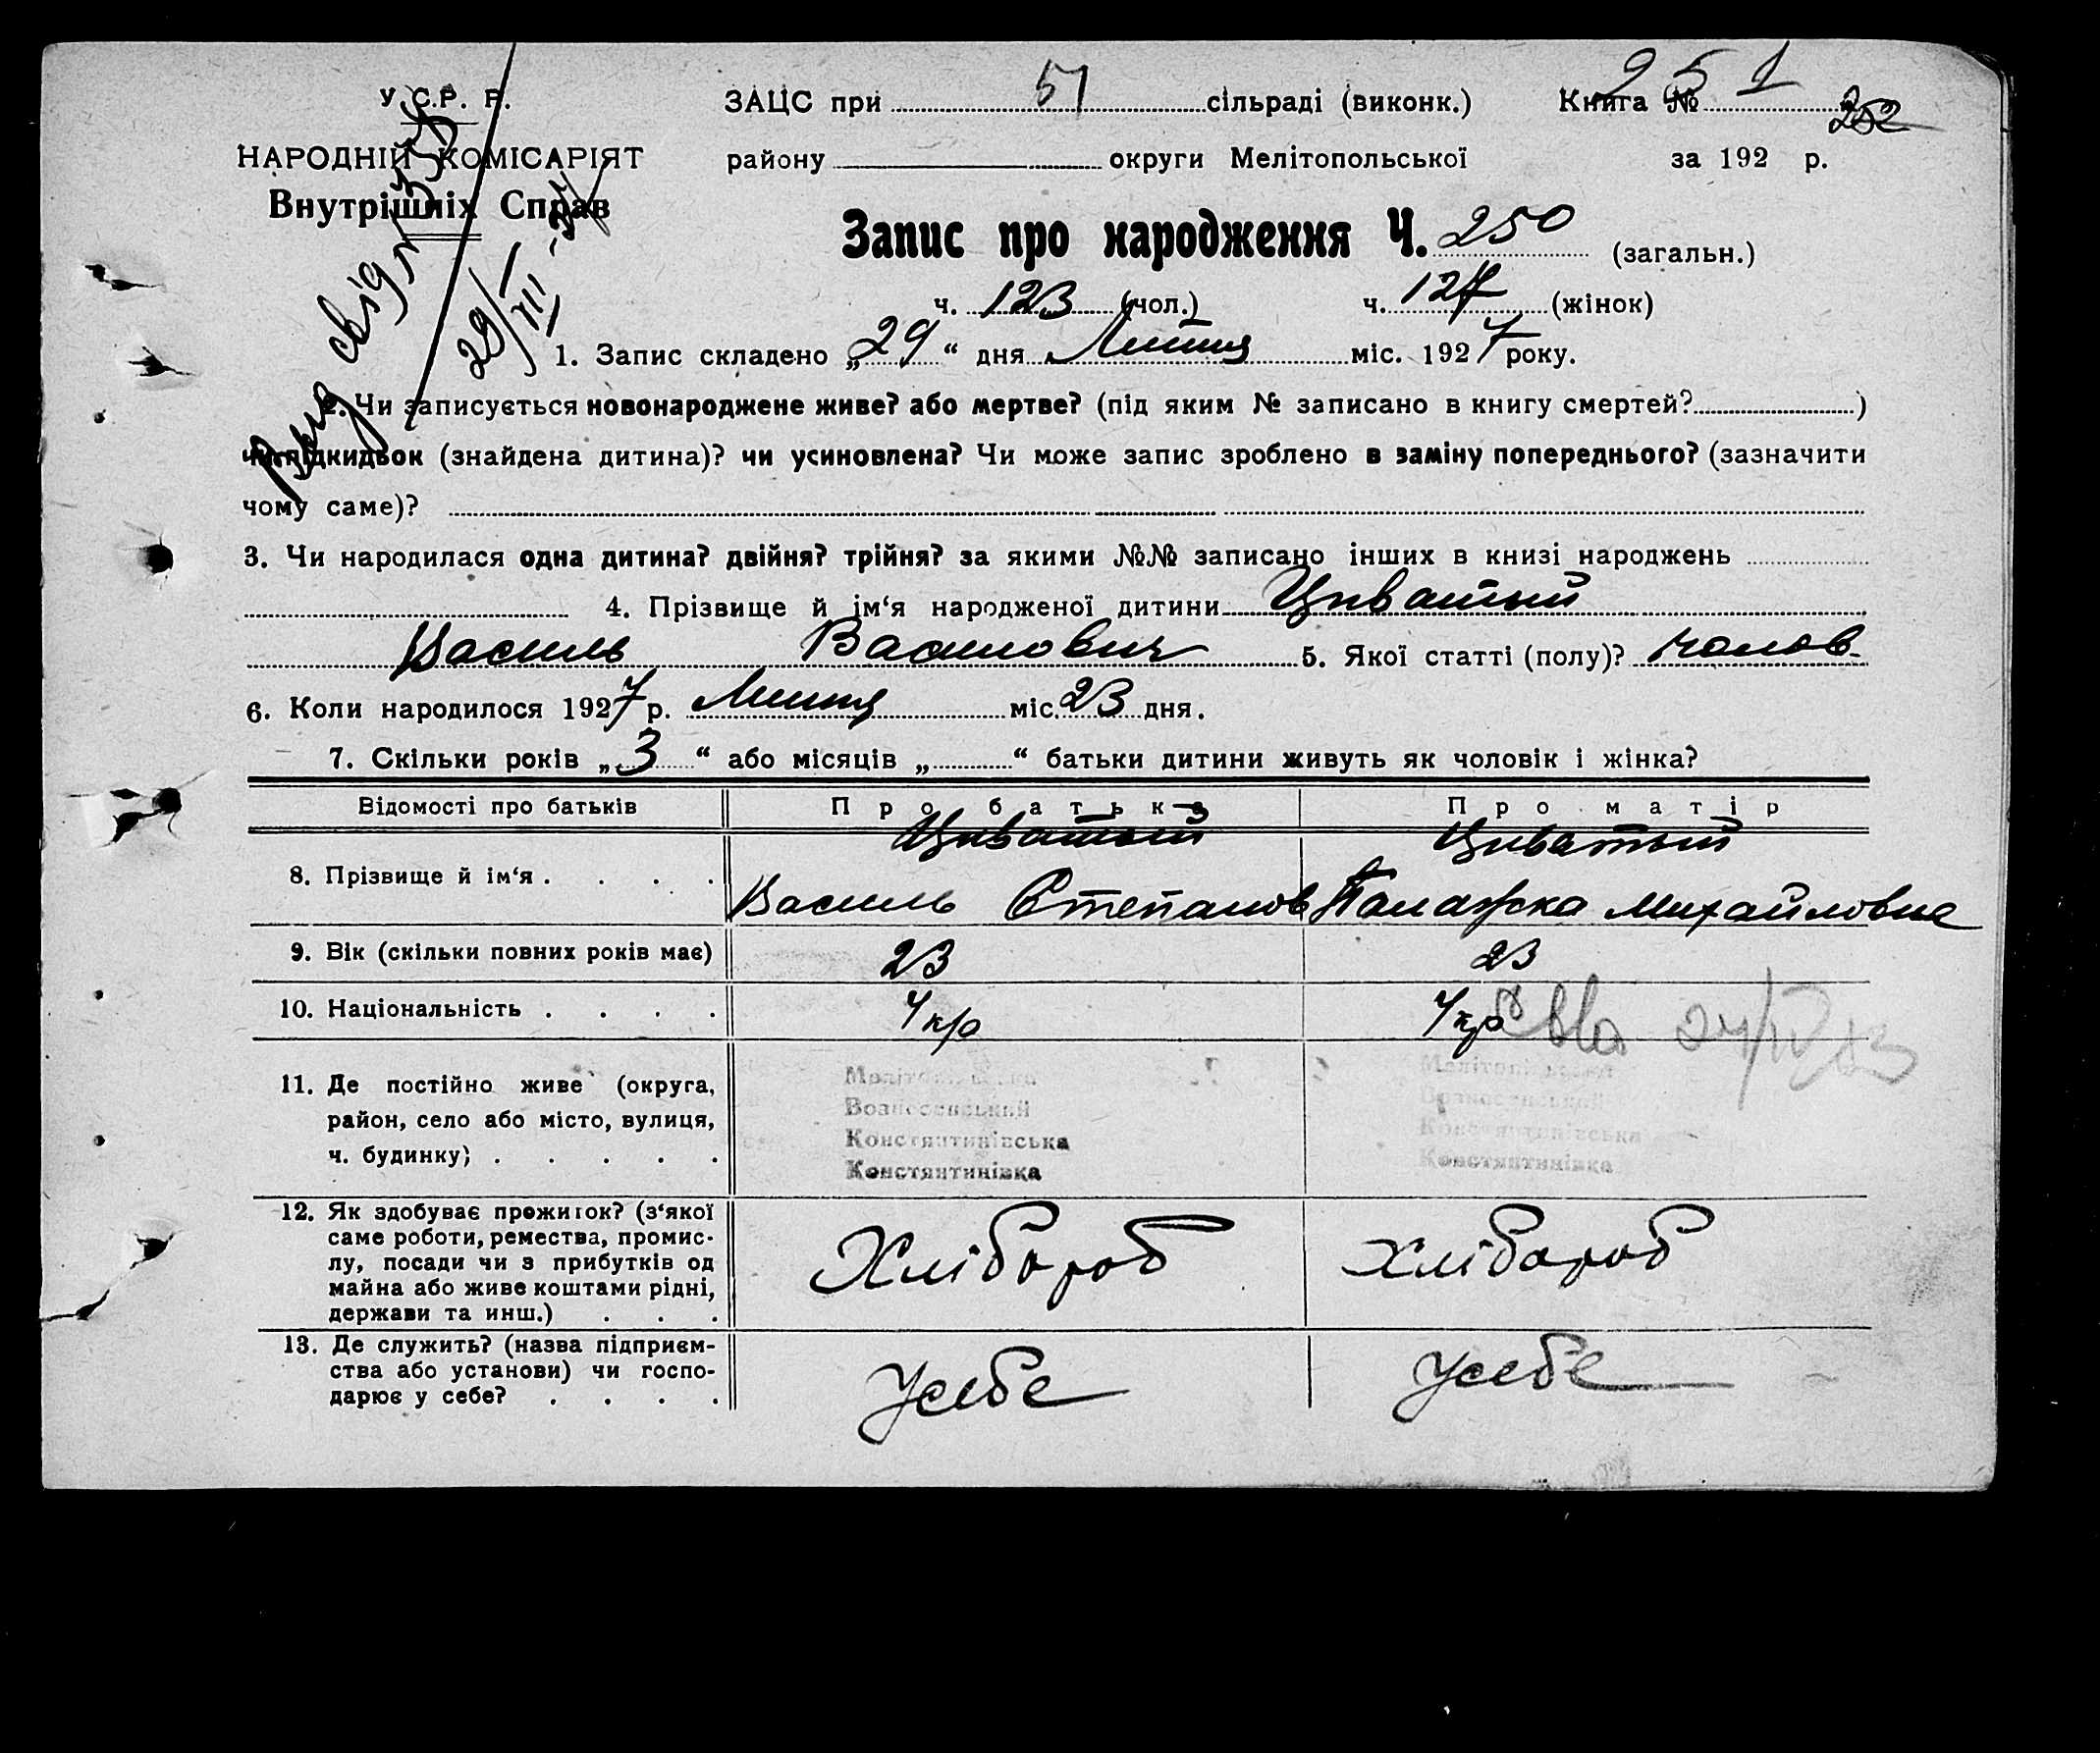 У.С.Р.Р.
НАРОДНІЙ КОМІСАРІЯТ
Внутрішніх Справ
ЗАЦС при 51 сільраді (виконк.) Книга № 251
252
району округи Мелітопольської за 192 р.
Запис про народження Ч. 250 (загальн.)
ч. 123 (чол.) ч. 127 (жінок)
29/VII
1. Запис складено „29“ дня Липня міс. 1927 року.
2. Чи записується новонароджене живе? або мертве? (під яким № записано в книгу смертей? )
чи підкидьок (знайдена дитина)? чи усиновлена? Чи може запис зроблено в заміну попереднього? (зазначити
чому саме)?
3. Чи народилася одна дитина? двійня? трійня? за якими №№ записано інших в книзі народжень
4. Прізвище й ім‘я народженої дитини Циватый
Василь Василович 5. Якої статті (полу)? чолов.
6. Коли народилося 1927 р. Липня міс. 23 дня.
7. Скільки років „3“ або місяців „ “ батьки дитини живуть як чоловік і жінка?
Відомості про батьків Про батька Про матір
Циватый Циватый
8. Прізвище й ім‘я . . . . Василь Степанов Палажка Михайловна
9. Вік (скільки повних років має) 23 23
10. Національність . . . . Укр Укр
11. Де постійно живе (округа,
район, село або місто, вулиця,
ч. будинку) . . . . .
Мелітопільська Мелітопільська
Вознесенський Вознесенський
Константинівська Константинівська
Константинівка Константинівка
12. Як здобуває прожиток? (з‘якої
саме роботи, ремества, промис-
лу, посади чи з прибутків од
майна або живе коштами рідні,
держави та инш.) . . .
Хлібороб Хлібороб
13. Де служить? (назва підприєм-
ства або установи) чи госпо-
дарює у себе? . . . .
Усебе Усебе